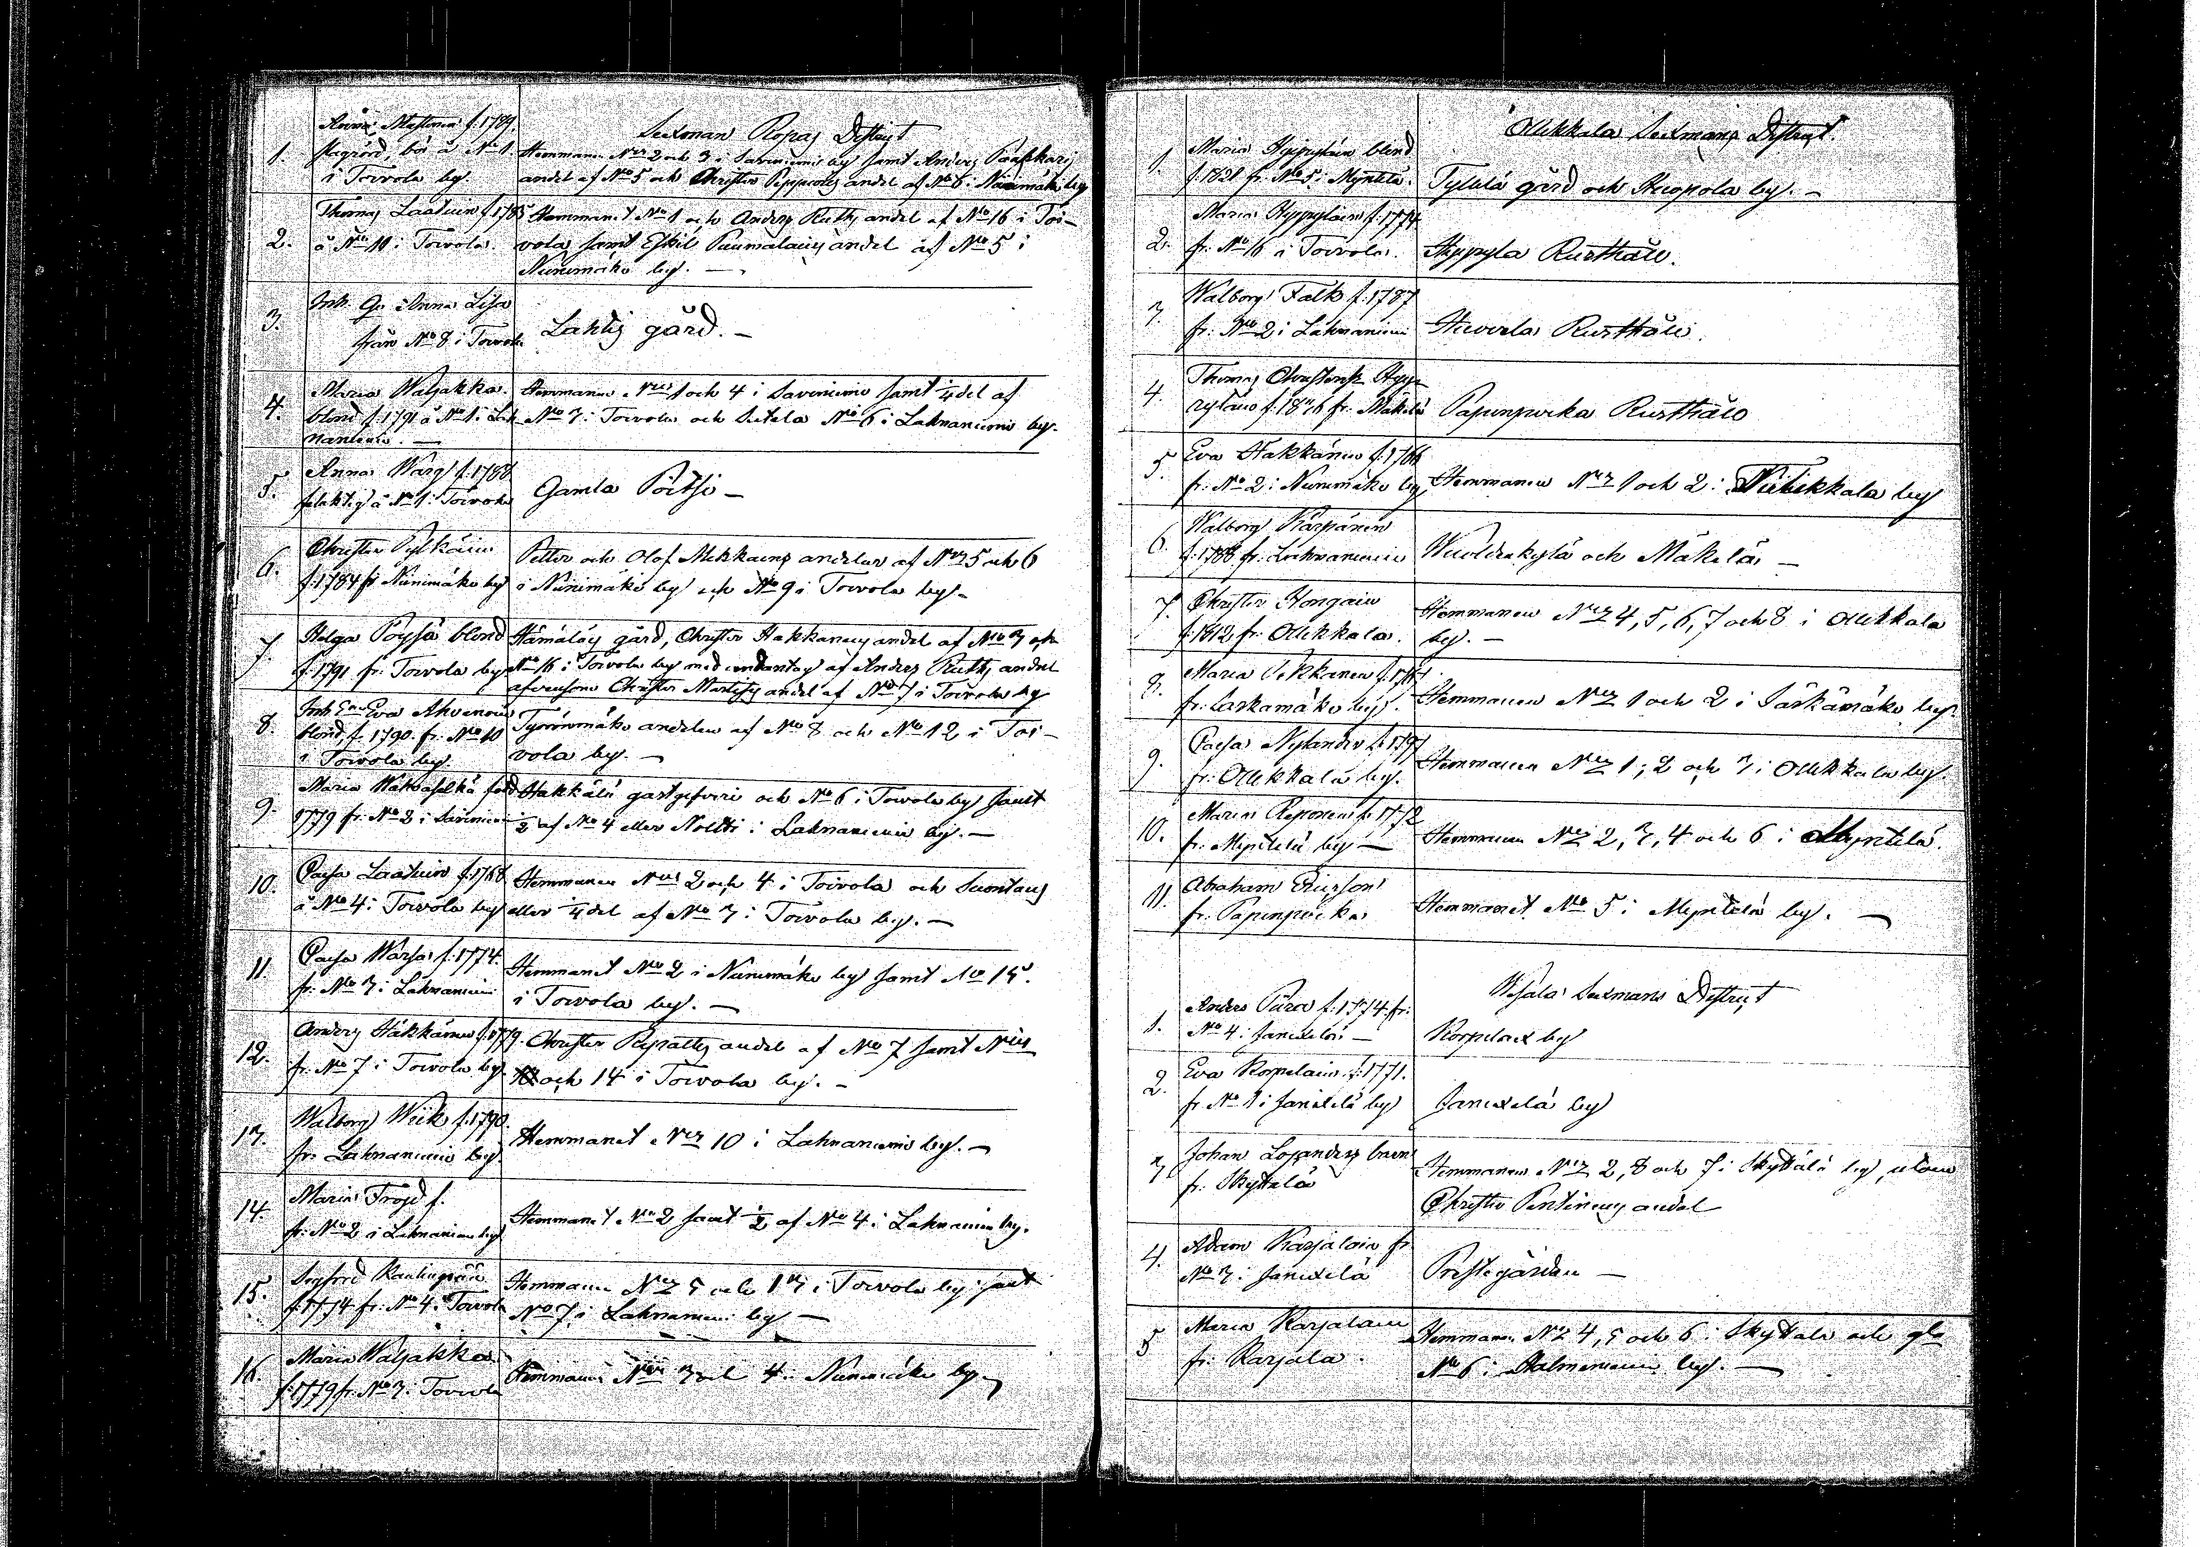 Sexman Ropas District
1. Anna Mustonen f. 1789.
bor å No 1.
i Toivola by.
Hemmanen Nris 2 och 3 i Saviniemi by samt Anders
andel af No 5 och Christer andel af No 6 i Niinimäki by
2. Thomas Laatuin f. 178
å No 10 i Toivola.
Hemmanet No 1 och Anders Rutts andel af No 16 i Toi-
vola samt Eskil Paumalains andel af No 5 i
Niinimäki by. —
3. Enk. Anna Lisa
från No 8 i Toivola
Lahtis gård. —
4. Maria Waljakka
blind f. 1791 å No 1 i Lah-
naniemi. —
Hemmanen Nris 1 och 4 i Saviniemi samt ¼ del af
No 3 i Toivola och Sutela No 6 i Lahnaniemi by.
5. Anna Warg f. 1788
å No 1 i Toivola
Gamla Pöitsi —
6. Christer Pylkäin
f. 1784 fr Niinimäki by
Petter och Olof Mikkains andelar af Nris 5 och 6
i Niinimäki by och No 9 i Toivola by —
7. Helga Pöysä blind
f. 1791 fr. Toivola by
Hämäläs gård, Christer Hakkanens andel af No 3 och
No 16 i Toivola by med undantag af Anders Rutts andel
äfvensom Christer andel af No 7 i Toivola by
8. Enk Eva Ahvenain
blind f. 1790. fr. No 10
i Toivola by.
Tyrönmäki andelen af No 8 och No 12 i Toi-
vola by. —
9. Maria född
1779 fr. No 2 i Savinie
Hakkälä gästgifveri och No 6 i Toivola by samt
½ af No 4 eller Noltti i Lahnaniemi by. —
10. Caisa Laatuin f. 1768
å No 4 i Toivola by
Hemmanen Nris 2 och 4 i Toivola och Suontaus
eller ¼ del af No 3 i Toivola by. —
11. Caisa f. 1774.
fr. No 3 i Lahnaniemi
Hemmanet No 2 i Niinimäki by samt No 15.
i Toivola by. —
12. Anders Häkkänen f. 1779.
fr. No 7 i Toivola by.
Christer Repattis andel af No 7 samt Nris
och 14 i Toivola by. —
13. Walborg Wiik f. 1790.
fr. Lahnaniemi by.
Hemmanet Nris 10 i Lahnaniemi by. —
14. Maria Trogd f.
fr. No 2 i Lahnaniemi by
Hemmanet No 2 samt ½ af No 4 i Lahnaniemi by.
15. Sigfrid
f. 1774 fr. No 4 i Toivola
Hemmanen Nris 5 och 13 i Toivola by samt
No 7 i Lahnaniemi by —
16. Maria Waljakka
f. 1779 fr. No 3 i Toivola
Hemmanen Nris 3 och 4 i Niinimäki by —
Ollikkala Sexmans District.
1. Maria Hyppyläin blind
f. 1828 fr. No 5 i Myntilä.
Tylulä gård och Huopola by. —
2. Maria Hyppyläin f. 1774
fr. No 16 i Toivola.
Hyppylä Rusthåll.
3. Walborg Falk f. 1787
fr. No 2 i Lahnaniemi
Rusthåll.
4. Thomas Christerss. Hyyp-
f. 1816 fr. Mäkelä
Papinpuika Rusthåll
5. Eva Hakkänen f. 1766
fr. No 2 i Niinimäki by
Hemmanen Nris 1 och 2 i by
6. Walborg Kärpänen
f. 1788 fr. Lahnaniemi
och Mäkelä —
7. Christer Hongain
f. 1812 fr. Ollikkala.
Hemmanen Nris 4, 5, 6, 7 och 8 i Ollikkala
by. —
8. Maria Pekkanen f.
fr. Särkämäki by.
Hemmanen Nris 1 och 2 i Särkämäki by.
9. Caisa Nylander f. 1797
fr. Ollikkala by.
Hemmanen Nris 1, 2 och 3 i Ollikkala by.
10. Maria Reponen f. 1772
fr. Myntilä by —
Hemmanen Nris 2, 3, 4 och 6 i Myntilä.
11. Abraham Ericsson
fr. Papinpuika
Hemmanet No 5 i Myntilä by. —
Wesala Sexmans District
1. Anders Pura f. 1774 fr.
No 4 i Janixelä —
Korpelax by
2. Eva Korpelain f. 1771.
fr No 1 i Janixelä by
Janixelä by
3. Johan barn
fr. Skyttälä
Hemmanen Nris 2, 8 och 7 i Skyttälä by, utom
Christer Pentinens andel
4. Adam Karjalain fr
No 3 i Janixelä
Prestegården —
5. Maria Karjalain
fr. Karjala.
Hemmanen Nris 4, 5 och 6 i Skyttälä och
No 6 i by. —